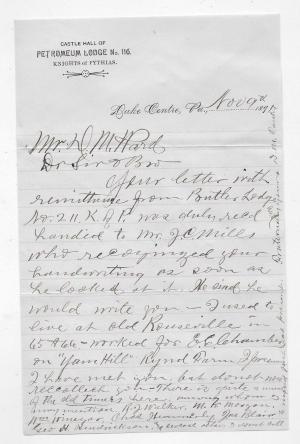 CASTLE HALL OF
PETROLEUM LODGE No. 116.
KNIGHTS OF PYTHIAS.
Duke Centre, Pa., Nov 9th 189
Mr. D. M. Ward
Dr Sir & Bro
Your letter with
remittance from Butler Lodge
No. 211, K of P. was duly recd
handed to Mr. J.C. Mills
who recognized your
handwriting as soon as
he looked at it. He said he
would write you — I used to
live at old Rouseville in
65 & 66 — worked for
on Farm I presume
I have met you but do not
recollect you — There is quite a
of the old timers here, among whom I
may mention Walker,
Joe Blair
Geo. H.